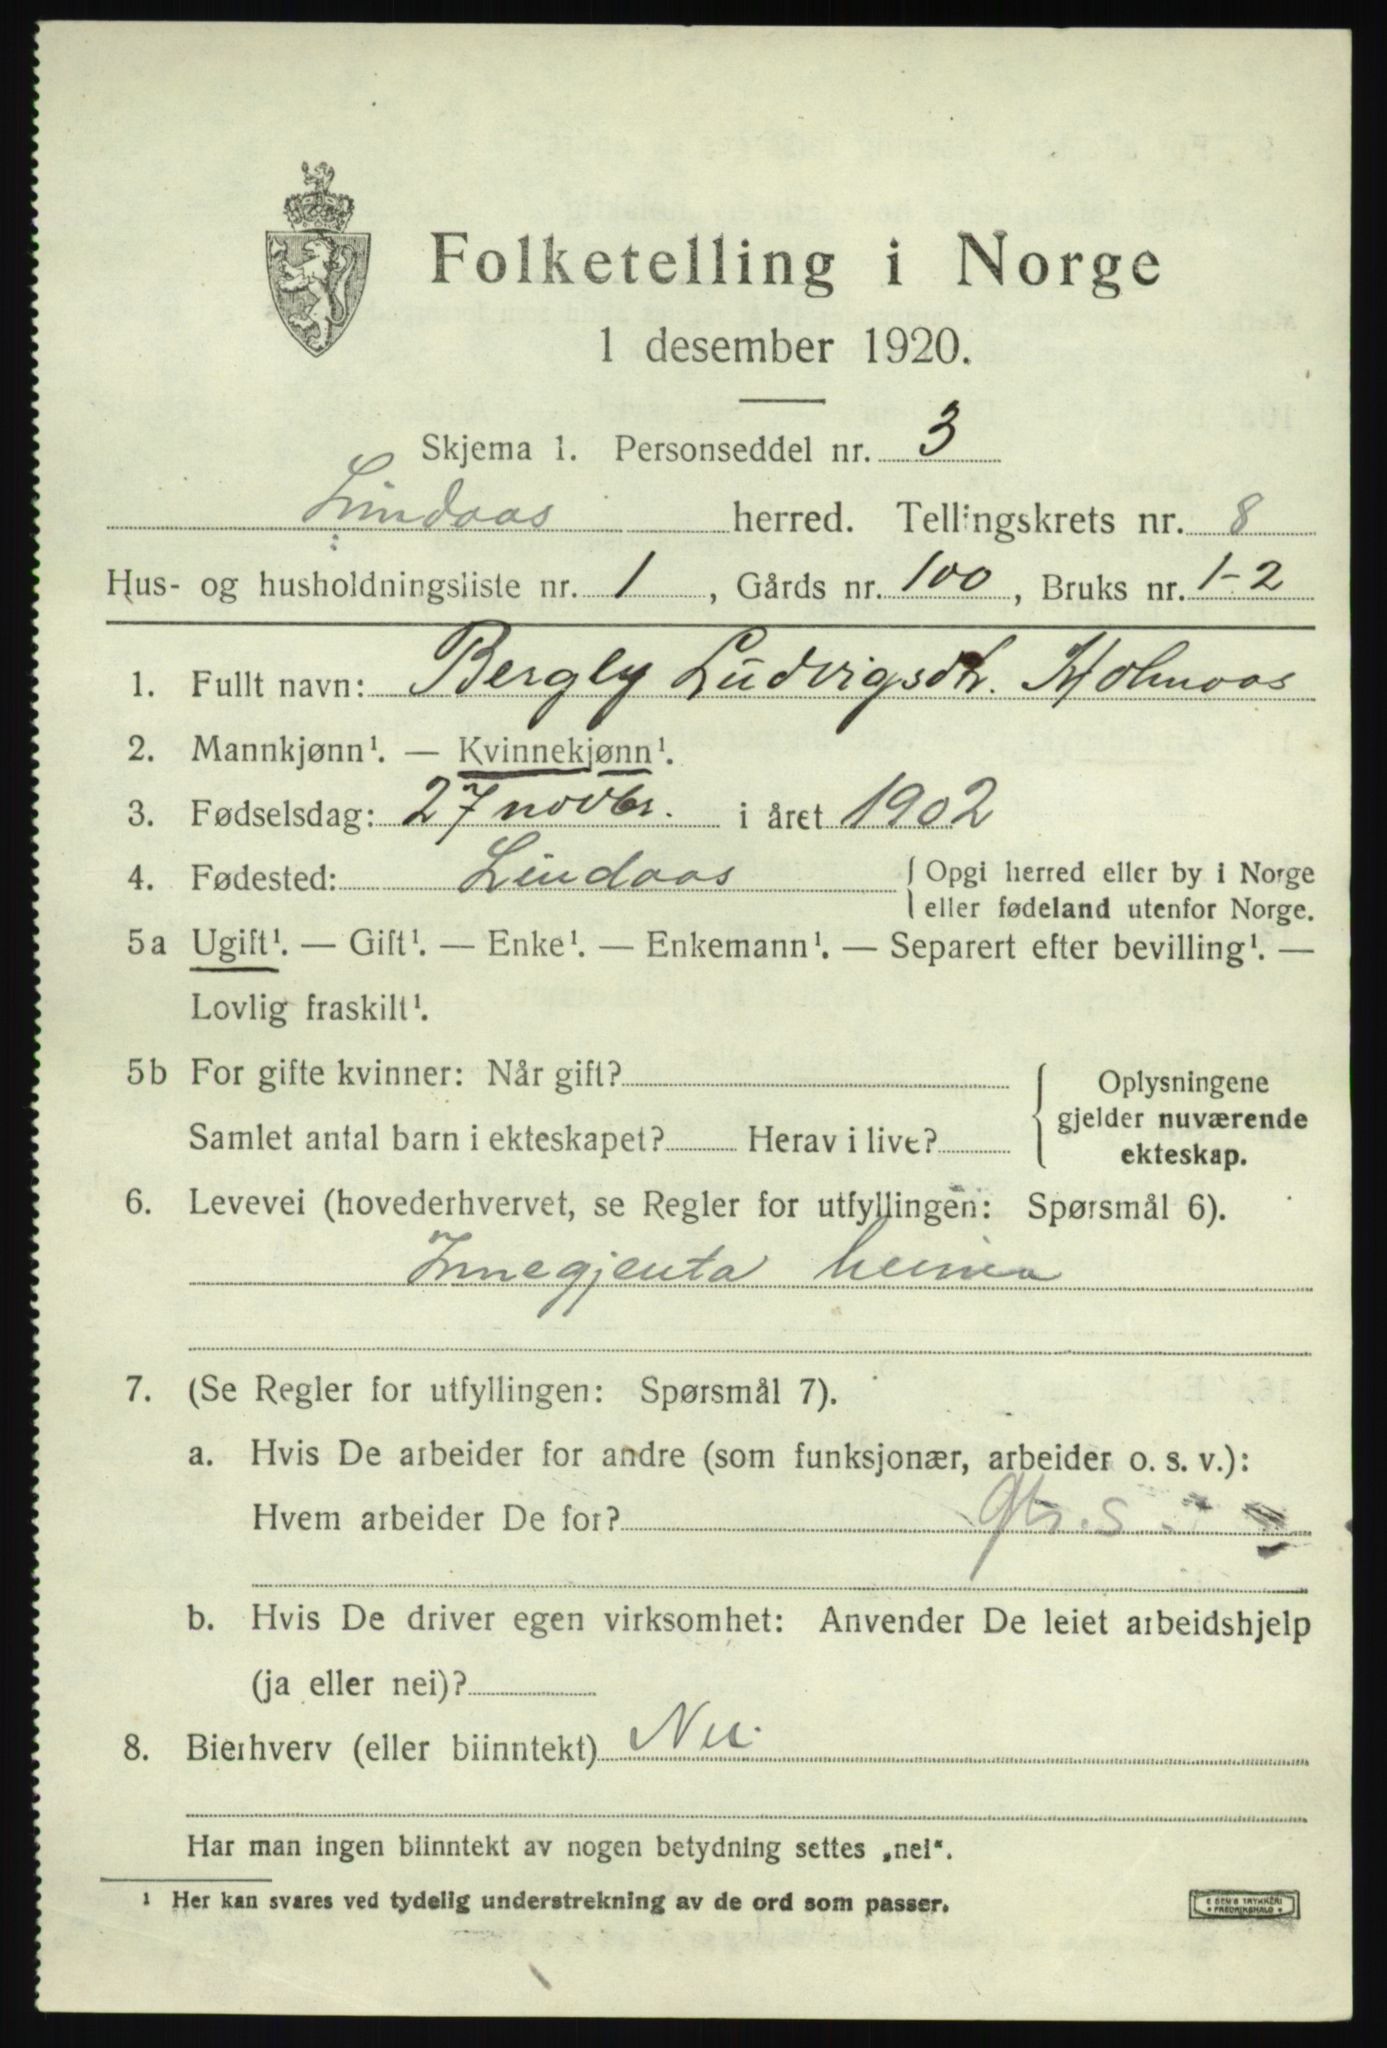 Folketelling i Norge
1 desember 1920.
Skjema 1. Personseddel nr. 3
Lindaas herred. Tellingskrets nr. 8
Hus- og husholdningsliste nr. 1, Gårds nr. 100, Bruks nr. 1-2
1. Fullt navn: Bergly Ludvigsdtr. Kolmaas
2. Mannkjønn¹. — Kvinnekjønn¹.
3. Fødselsdag: 27 novbr. i året 1902
4. Fødested: Lindaas { Opgi herred eller by i Norge
eller fødeland utenfor Norge.
5a Ugift¹. — Gift¹. — Enke¹. — Enkemann¹. — Separert efter bevilling¹. —
Lovlig fraskilt¹.
5b For gifte kvinner: Når gift?
Samlet antal barn i ekteskapet? Herav i live?
Oplysningene
gjelder nuværende
ekteskap.
6. Levevei (hovederhvervet, se Regler for utfyllingen: Spørsmål 6).
Innegjenta heima
7. (Se Regler for utfyllingen: Spørsmål 7).
a. Hvis De arbeider for andre (som funksjonær, arbeider o. s. v.):
Hvem arbeider De for?
b. Hvis De driver egen virksomhet: Anvender De leiet arbeidshjelp
(ja eller nei)?
8. Bierhverv (eller biinntekt) Nei
Har man ingen biinntekt av nogen betydning settes „nei“.
¹ Her kan svares ved tydelig understrekning av de ord som passer.
E SEM'S TRYKKERI
FREDRIKSHALD